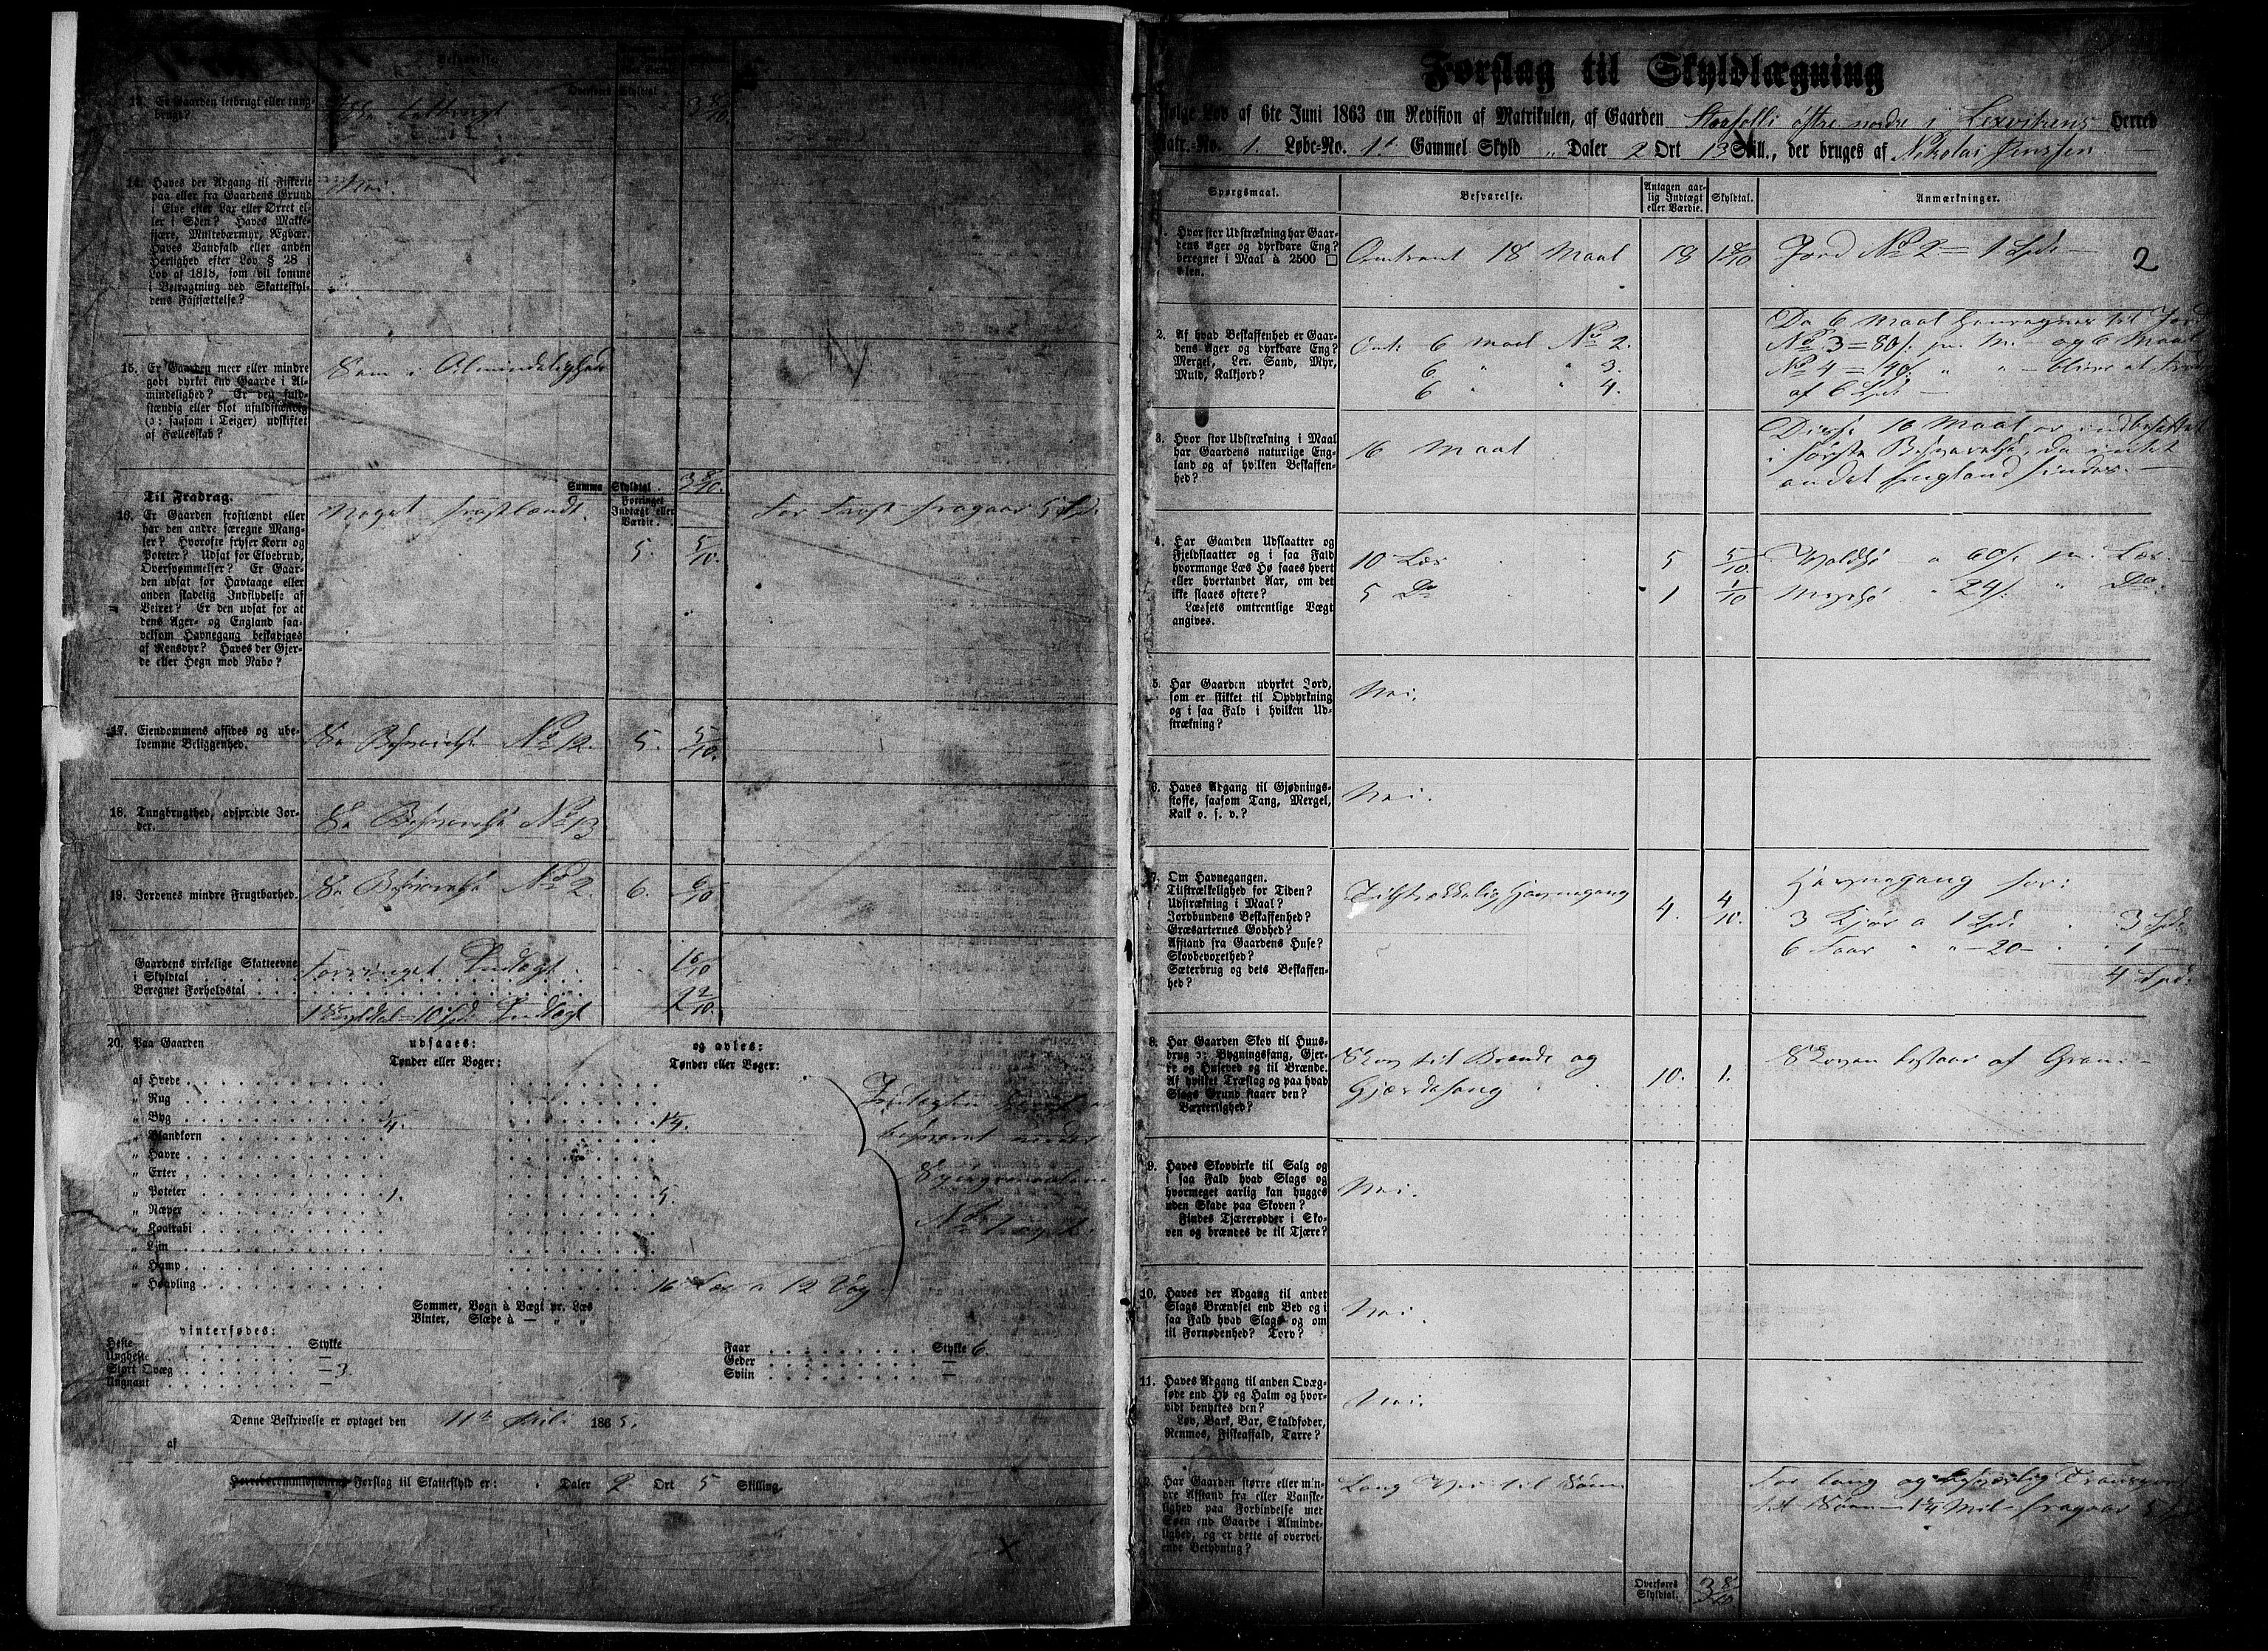 Besvarelse.
Overføres Skyldtal 3 8/10.
13. Er Gaarden letbrugt eller tung-
brugt?
14. Haves der Adgang til Fiskerie
paa eller fra Gaardens Grund
i Elve efter Lax eller Ørret el-
ler i Søen? Haves Makke-
fjære, Multebærmyr, Ægvær.
Haves Vandfald eller anden
Herlighed efter Lov § 28 i
Lov af 1818, som vil komme
i Betragtning ved Skatteskyl-
dens Fastsættelse?
Nei.
15. Er Gaarden meer eller mindre
godt dyrket end Gaarde i Al-
mindelighed? Er den fuld-
stændig eller blot ufuldstændig
(ɔ: saasom i Teiger) udskiftet
af Fællesskab?
Som i Almindelighed
Summa Skyldtal. 3 8/10.
Til Fradrag.
Forringet
Indtægt eller
Værdie.
16. Er Gaarden frostlændt eller
har den andre særegne Mang-
ler? Hvorofte fryser Korn og
Poteter? Udsat for Elvebrud,
Oversvømmelser? Er Gaar-
den udsat for Havtaage eller
anden skadelig Indflydelse af
Veiret? Er den udsat for at
dens Ager- og England saa-
velsom Havnegang beskadiges
af Rensdyr? Haves der Gjer-
de eller Hegn mod Nabo?
Noget frostlændt. 5. 5/10. For Frost fragaar 5 Spd.
17. Eiendommens afsides og ube-
kvemme Beliggenhed.
Se Besvarelse No 12. 5. 5/10.
18. Tungbrugthed, adspredte Jor-
der.
Se Besvarelse No 13
19. Jordenes mindre Frugtbarhed.
Se Besvarelse No 2. 6. 6/10
Gaardens virkelige Skatteevne
i Skyldtal
Forringet Indtægt 1 6/10
Beregnet Forholdstal 2 2/10.
1 Skyldtal = 10 Spd. Indtægt
20. Paa Gaarden udsaaes: og avles:
Tønder eller Voger: Tønder eller Voger:
af Hvede
„ Rug
„ Byg
„ Blandkorn
„ Havre
„ Erter
„ Poteter 1. 5.
„ Næper
„ Kaalrabi
„ Lin
„ Hamp
„ Høavling 16 Læs a 12 Vog
Sommer, Vogn à Vægt pr. Læs
Vinter, Slæde à — „ „
vinterfødes:
Heste Stykke
Ungheste —
Stort Qvæg — 3.
Ungnaut —
Faar Stykke 6.
Geder —
Sviin —
Denne Beskrivelse er optaget den 11te Juli 1865.
af
Herredscommissionens Forslag til Skatteskyld er: „ Daler 2 Ort 5 Skilling.
Forslag til Skyldlægning
følge Lov af 6te Juni 1863 om Revision af Matrikulen, af Gaarden Storsolli østre nordre i Lexvikens Herred
Matr.-No. 1. Løbe-No. Gammel Skyld „ Daler 2 Ort 13 Skill., der bruges af Nikolai Jenssen
Spørgsmaal. Besvarelse. Antagen aar-
lig Indtægt
eller Værdie. Skyldtal. Anmærkninger.
Hvor stor Udstrækning har Gaar-
dens Ager og dyrkbare Eng?
beregnet i Maal à 2500 □
Alen.
Omtrent 18 Maal 18 1 8/10 Jord No 2 = 1 Spd. — 2
2. Af hvad Beskaffenhed er Gaar-
dens Ager og dyrkbare Eng?
Mergel, Ler, Sand, Myr,
Muld, Kalkjord?
Omt: 6 Maal No 2.
6 „ „ 3.
6 „ „ 4.
Da 6 Maal henregnes til Jord
No 3 = 80 s. pr. M. — og 6 Maal
No 4 = 40 s. „ „ — bliver at fradr
af 6 Spd —
3. Hvor stor Udstrækning i Maal
har Gaardens naturlige Eng-
land og af hvilken Beskaffen-
hed?
16 Maal
Disse 16 Maal er indbefattet
i første Besvarelse, da intet
andet England findes. —
4. Har Gaarden Udslaatter og
Fjeldslaatter og i saa Fald
hvormange Læs Hø faaes hvert
eller hvertandet Aar, om det
ikke slaaes oftere?
Læssets omtrentlige Vægt
angives.
10 Læs 5 5/10. Voldhø a 60 s. pr. Læs
5 Do 1 1/10 Myrhø „ 24 s. „ Do.
5. Har Gaarden udyrket Jord,
som er skikket til Opdyrkning
og i saa Fald i hvilken Ud-
strækning?
Nei.
6. Haves Adgang til Gjødnings-
stoffe, saasom Tang, Mergel,
Kalk o. s. v.?
Nei.
7. Om Havnegangen.
Tilstrækkelighed for Tiden?
Udstrækning i Maal?
Jordbundens Beskaffenhed?
Græsarternes Godhed?
Afstand fra Gaardens Huse?
Skovbevoxethed?
Sæterbrug og dets Beskaffen-
hed?
Tilstrækkelig Havnegang 4. 4/10.
Havnegang for:
3 Kjør a 1 Spd. „ 3 Spd.
6 Faar „ „ — 20 — „ 1 —
4 Spd.
8. Har Gaarden Skov til Huus-
brug ɔ: Bygningsfang, Gjer-
de og Husved og til Brænde.
Af hvilket Træslag og paa hvad
Slags Grund staaer den?
Væxterlighed?
Skov til Brænde og
Gjærdefang 10. 1. Skoven bestaar af Gran. —
9. Haves Skovvirke til Salg og
i saa Fald hvad Slags og
hvormeget aarlig kan hugges
uden Skade paa Skoven?
Findes Tjærerødder i Sko-
ven og brændes de til Tjære?
Nei.
10. Haves der Adgang til andet
Slags Brændsel end Ved og i
saa Fald hvad Slags og om
til Fornødenhed? Torv?
Nei.
11. Haves Adgang til anden Qvæg-
føde end Hø og Halm og hvor-
vidt benyttes den?
Løv, Bark, Bar, Staldfoder,
Renmos, Fiskeaffald, Tarre?
Nei.
Har Gaarden større eller min-
dre Afstand fra eller Vanske-
lighed paa Forbindelse med
Søen end Gaarde i Alminde-
lighed, og er dette af overvei-
ende Betydning?
Lang Vei til Søen
For lang og besværlig Transport
til Søen 1 1/4 Mil fragaar 5 Spd
Overføres
Skyldtal. 3 8/10